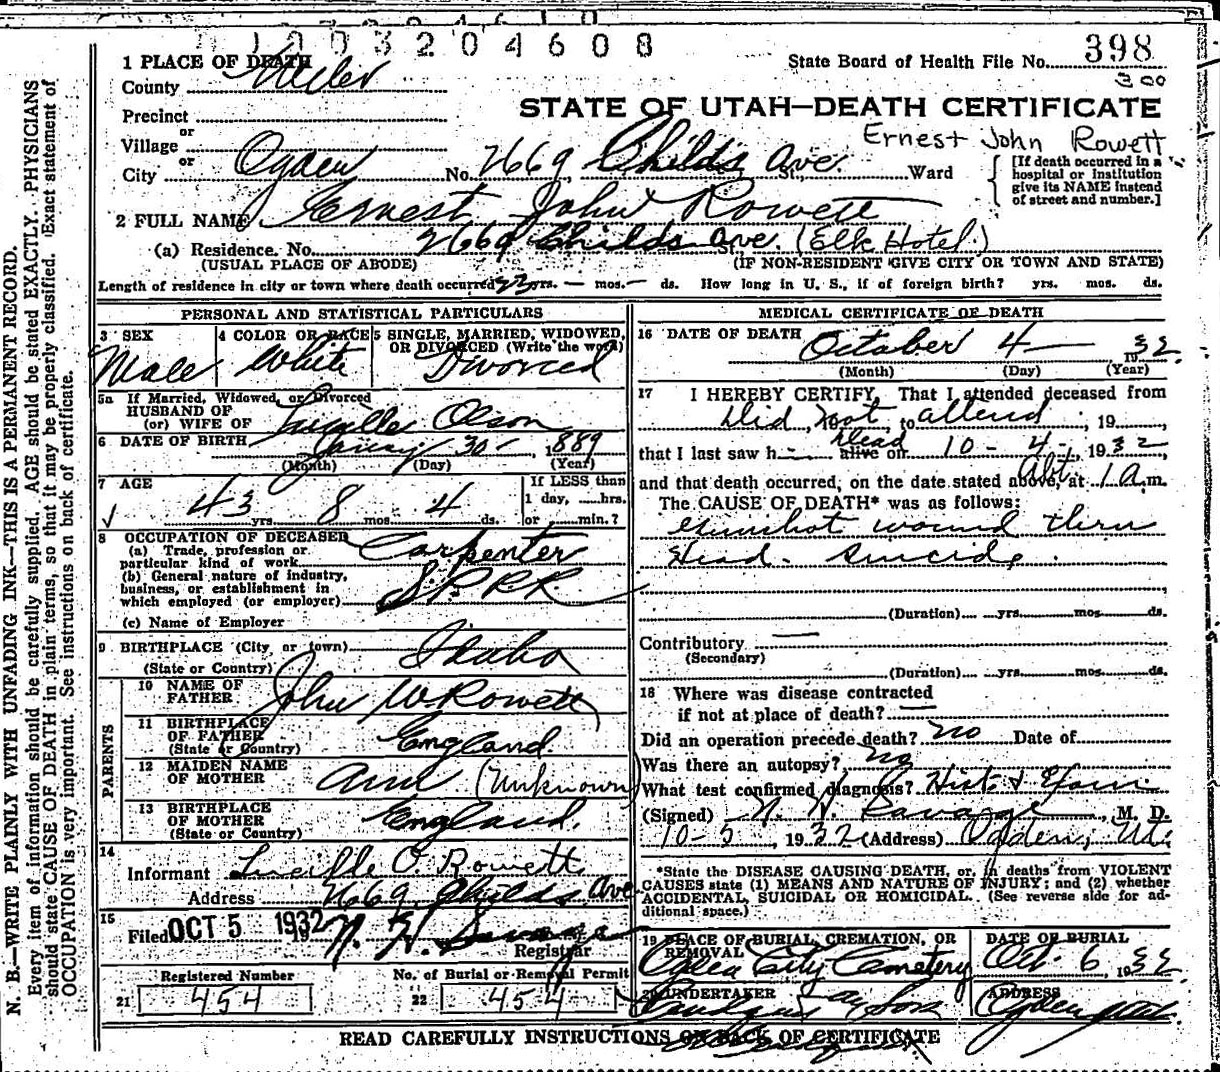 1003204608
State Board of Health File No. 398
300
1 PLACE OF DEATH
County Weber
STATE OF UTAH—DEATH CERTIFICATE
Precinct
or
Village
Ernest John Rowett
or
City Ogden No. 2669 Childs Ave. St., Ward
[If death occurred in a
hospital or institution
give its NAME instead
of street and number.]
2 FULL NAME Ernest John Rowett
(a) Residence. No. 2669 Childs Ave. (Elk Hotel.)
(USUAL PLACE OF ABODE) (IF NON-RESIDENT GIVE CITY OR TOWN AND STATE)
Length of residence in city or town where death occurred 23 yrs. — mos. — ds. How long in U. S., if of foreign birth? yrs. mos. ds.
PERSONAL AND STATISTICAL PARTICULARS
3 SEX
Male
4 COLOR OR RACE
White
5 SINGLE, MARRIED, WIDOWED,
OR DIVORCED (Write the word)
Divorced
5a If Married, Widowed, or Divorced
HUSBAND OF
(or) WIFE OF Lucille Olson
6 DATE OF BIRTH 30 - 1889
(Month) (Day) (Year)
7 AGE
43 yrs. 8 mos. 4 ds.
If LESS than
1 day, ......hrs.
or ......min.?
8 OCCUPATION OF DECEASED
(a) Trade, profession or
particular kind of work Carpenter
(b) General nature of industry,
business, or establishment in
which employed (or employer) S.P.R.R
(c) Name of Employer
9 BIRTHPLACE (City or town)
(State or Country) Idaho
PARENTS
10 NAME OF
FATHER John W Rowett
11 BIRTHPLACE
OF FATHER
(State or Country) England.
12 MAIDEN NAME
OF MOTHER Ann (Unknown)
13 BIRTHPLACE
OF MOTHER
(State or Country) England.
14
Informant Lucille O. Rowett
Address 2669 Childs Ave
15
Filed OCT 5 1932 19 N. H. Savage
Registrar
Registered Number
21 454
No. of Burial or Removal Permit
22 454
MEDICAL CERTIFICATE OF DEATH
16 DATE OF DEATH October 4 — , 1932.
(Month) (Day) (Year)
17 I HEREBY CERTIFY, That I attended deceased from
Did , not , to attend , 19
that I last saw h alive on Dead 10 - 4 - , 1932
and that death occurred, on the date stated above, at Abt. 1 A.m.
The CAUSE OF DEATH* was as follows:
Gunshot wound thru
Head. Suicide.
(Duration) yrs. mos. ds.
Contributory —
(Secondary)
(Duration) yrs. mos. ds.
18 Where was disease contracted
if not at place of death? —
Did an operation precede death? no Date of
Was there an autopsy? no
What test confirmed diagnosis? Hist &
(Signed) N. H. Savage , M. D.
10-5 , 1932 (Address) Ogden, Ut.
*State the DISEASE CAUSING DEATH, or, in deaths from VIOLENT
CAUSES state (1) MEANS AND NATURE OF INJURY; and (2) whether
ACCIDENTAL, SUICIDAL OR HOMICIDAL. (See reverse side for ad-
ditional space.)
19 PLACE OF BURIAL, CREMATION, OR
REMOVAL
Ogden City Cemetery
DATE OF BURIAL
Oct. 6, 1932
20 UNDERTAKER
& Son
ADDRESS
Ogden Utah.
READ CAREFULLY INSTRUCTIONS ON BACK OF CERTIFICATE
N. B.—WRITE PLAINLY WITH UNFADING INK—THIS IS A PERMANENT RECORD.
Every item of information should be carefully supplied. AGE should be stated EXACTLY. PHYSICIANS
should state CAUSE OF DEATH in plain terms, so that it may be properly classified. Exact statement of
OCCUPATION is very important. See instructions on back of certificate.